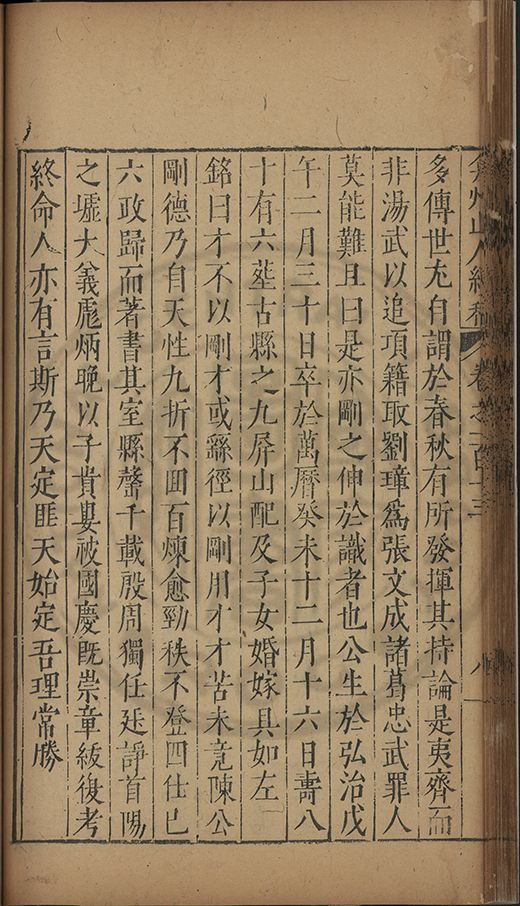 弇州山人續稿 卷之一百十三 八
多傳世尤自謂於春秋有所發揮其持論是夷齊而
非湯武以追項籍取劉璋爲張文成諸葛忠武罪人
莫能難且曰是亦剛之伸於識者也公生於弘治戊
午二月三十日卒於萬曆癸未十二月十六日壽八
十有六塟古縣之九屏山配及子女婚嫁具如左
銘曰才不以剛才或繇徑以剛用才才苦未竟陳公
剛德乃自天性九折不回百煉愈勁秩不登四仕已
六政歸而著書其室縣罄千載殷周獨任廷諍首陽
之墟大義彪炳晚以子貴婁被國慶既崇章紱復考
終命人亦有言斯乃天定匪天始定吾理常勝